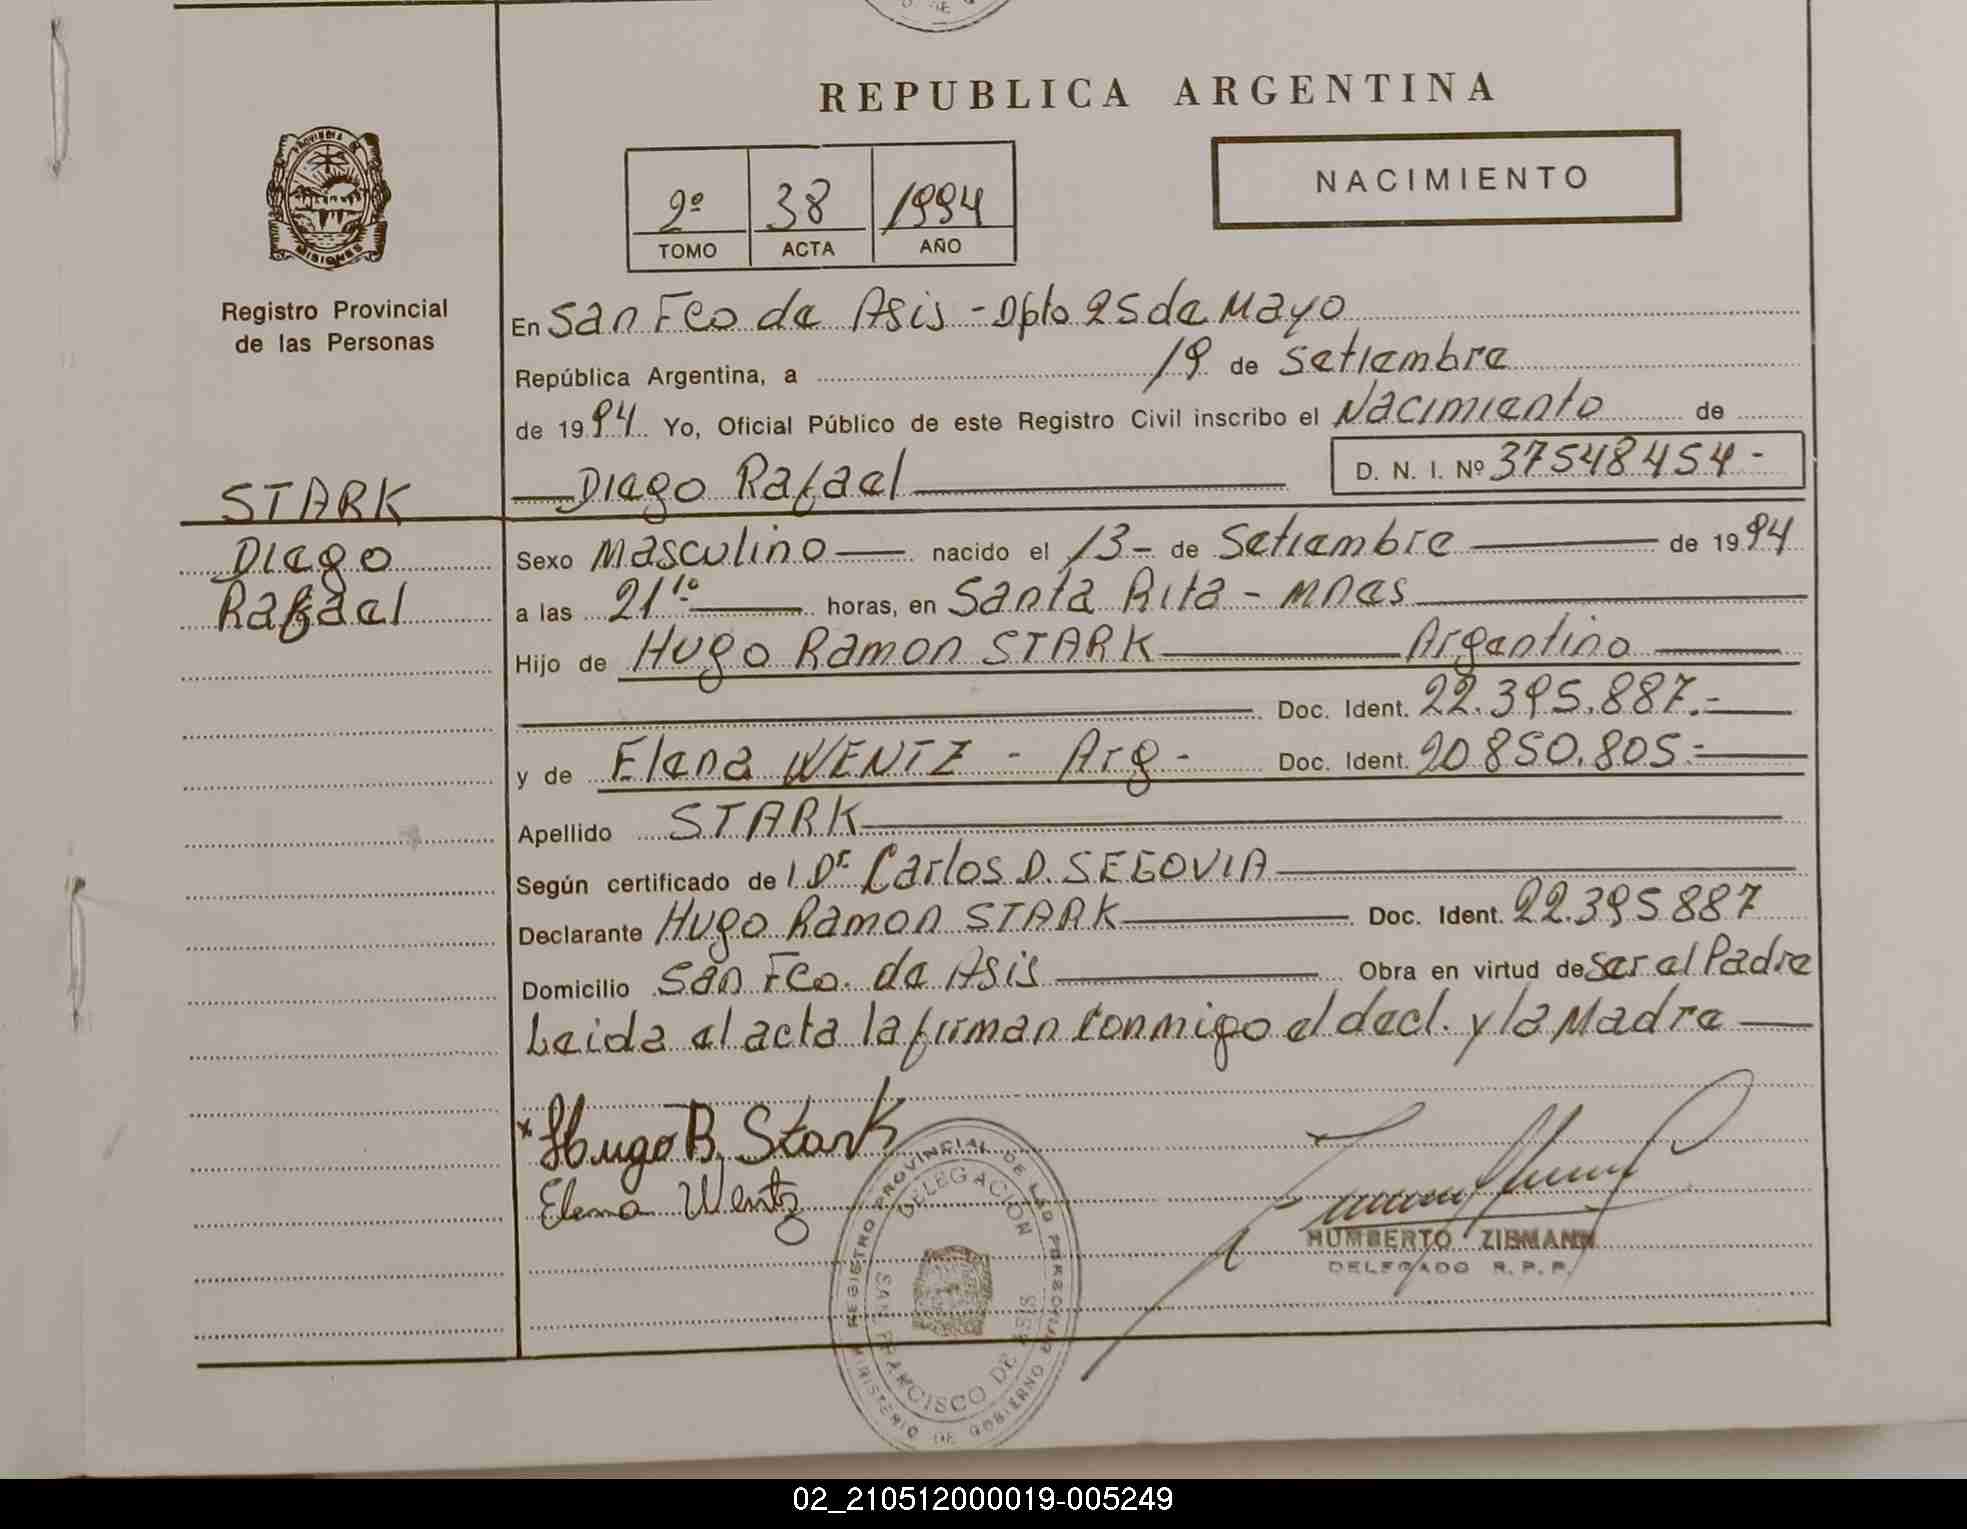 REPUBLICA ARGENTINA
NACIMIENTO
2º 38 1994
TOMO ACTA AÑO
PROVINCIA DE
MISIONES
Registro Provincial
de las Personas
En San Fco de Asis - Dpto 25 de Mayo
República Argentina, a 19 de Setiembre
de 1994 Yo, Oficial Público de este Registro Civil inscribo el Nacimiento de
Diego Rafael D. N. I. Nº 37548454-
STARK
Diego
Rafael
Sexo Masculino nacido el 13- de Setiembre de 1994
a las 21 horas, en Santa Rita - Mnes
Hijo de Hugo Ramon STARK Argentino
Doc. Ident. 22.395.887.-
y de Elena WENTZ - Arg - Doc. Ident. 20850.805.-
Apellido STARK
Según certificado de l Dr Carlos D. SEGOVIA
Declarante Hugo Ramon STARK Doc. Ident. 22.395887
Domicilio San Fco. de Asis Obra en virtud de ser el Padre
Leida el acta la firman conmigo el decl. y la Madre
Hugo R. Stark
Elena Wentz
REGISTRO PROVINCIAL DE LAS PERSONAS
DELEGACION
SAN FRANCISCO DE ASIS
MINISTERIO DE GOBIERNO
HUMBERTO ZIEMANN
DELEGADO R. P. P.
02_210512000019-005249